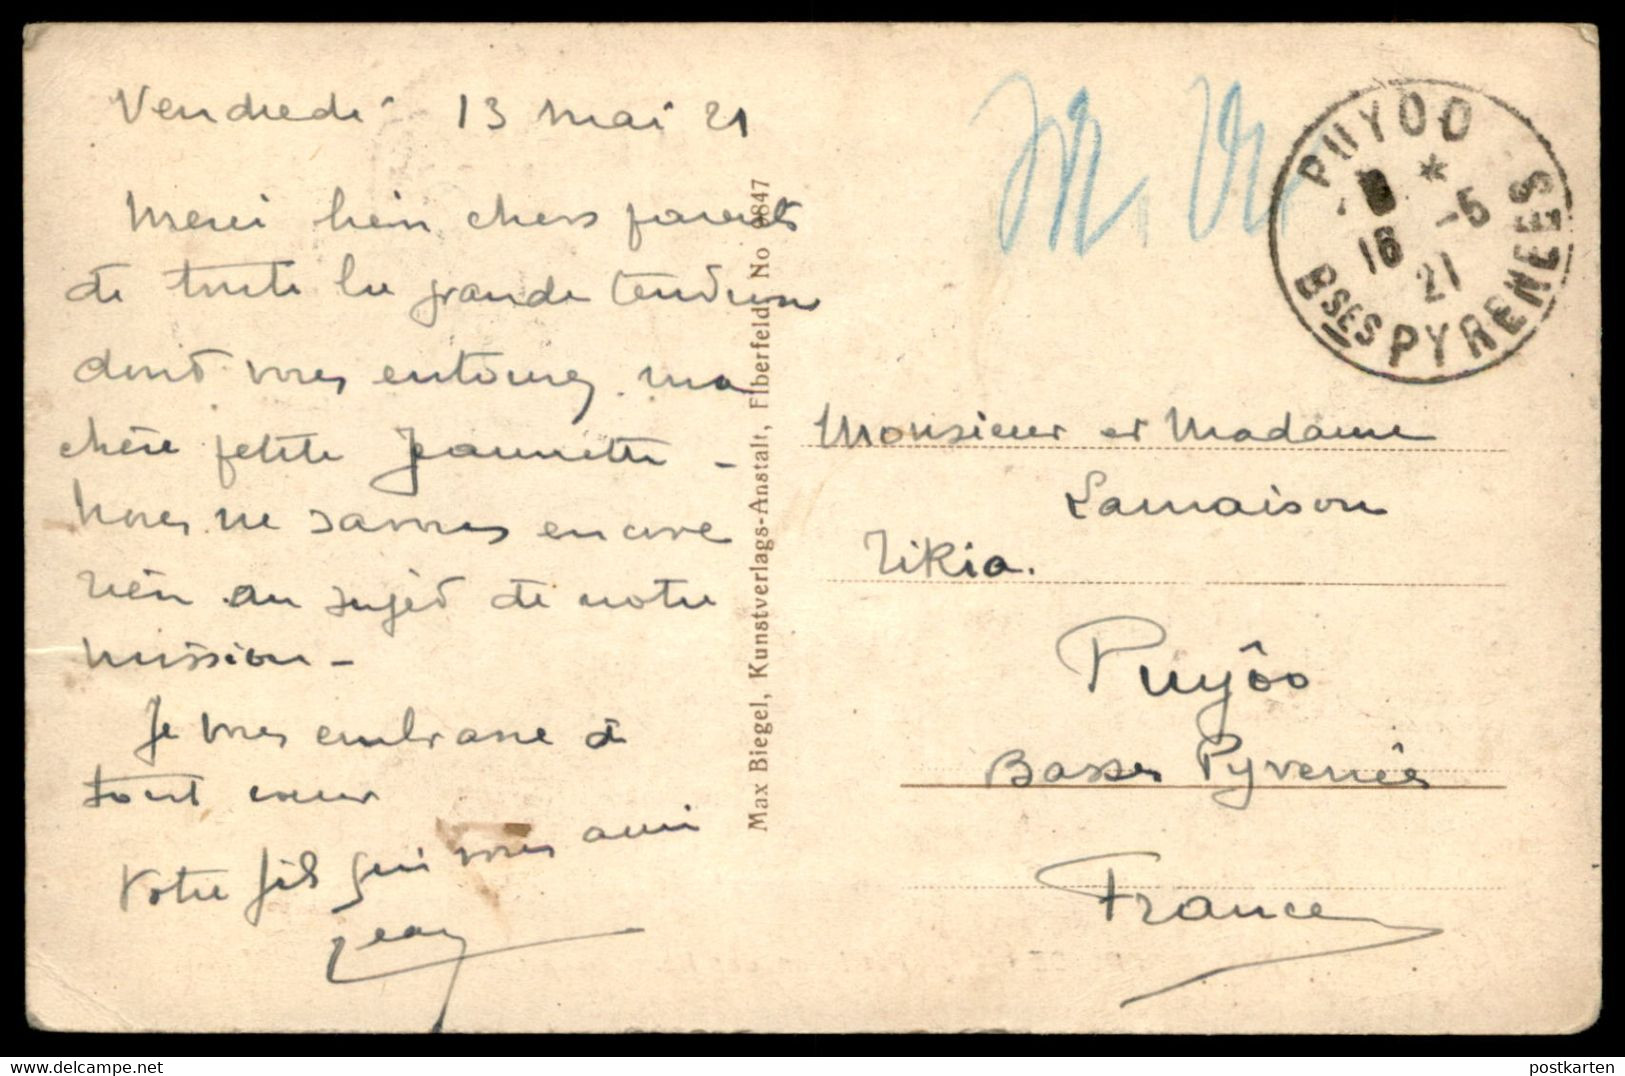 Vendredi 13 mai 21
Merci bien chers parents
de toute la grande tendresse
dont vous entourez ma
chère petite Jeannette -
Nous ne savons encore
rien au sujet de notre
mission -
Je vous embrasse de
tout cœur
Votre fils qui vous aime
Jean
Max Biegel, Kunstverlags-Anstalt, Elberfeld. No 9847
PUYOO
* 
16 -5
21
BSES PYRENEES
Monsieur et Madame
Lamaison
Tikia.
Puyôo
Basses Pyrenées
France
postkarten